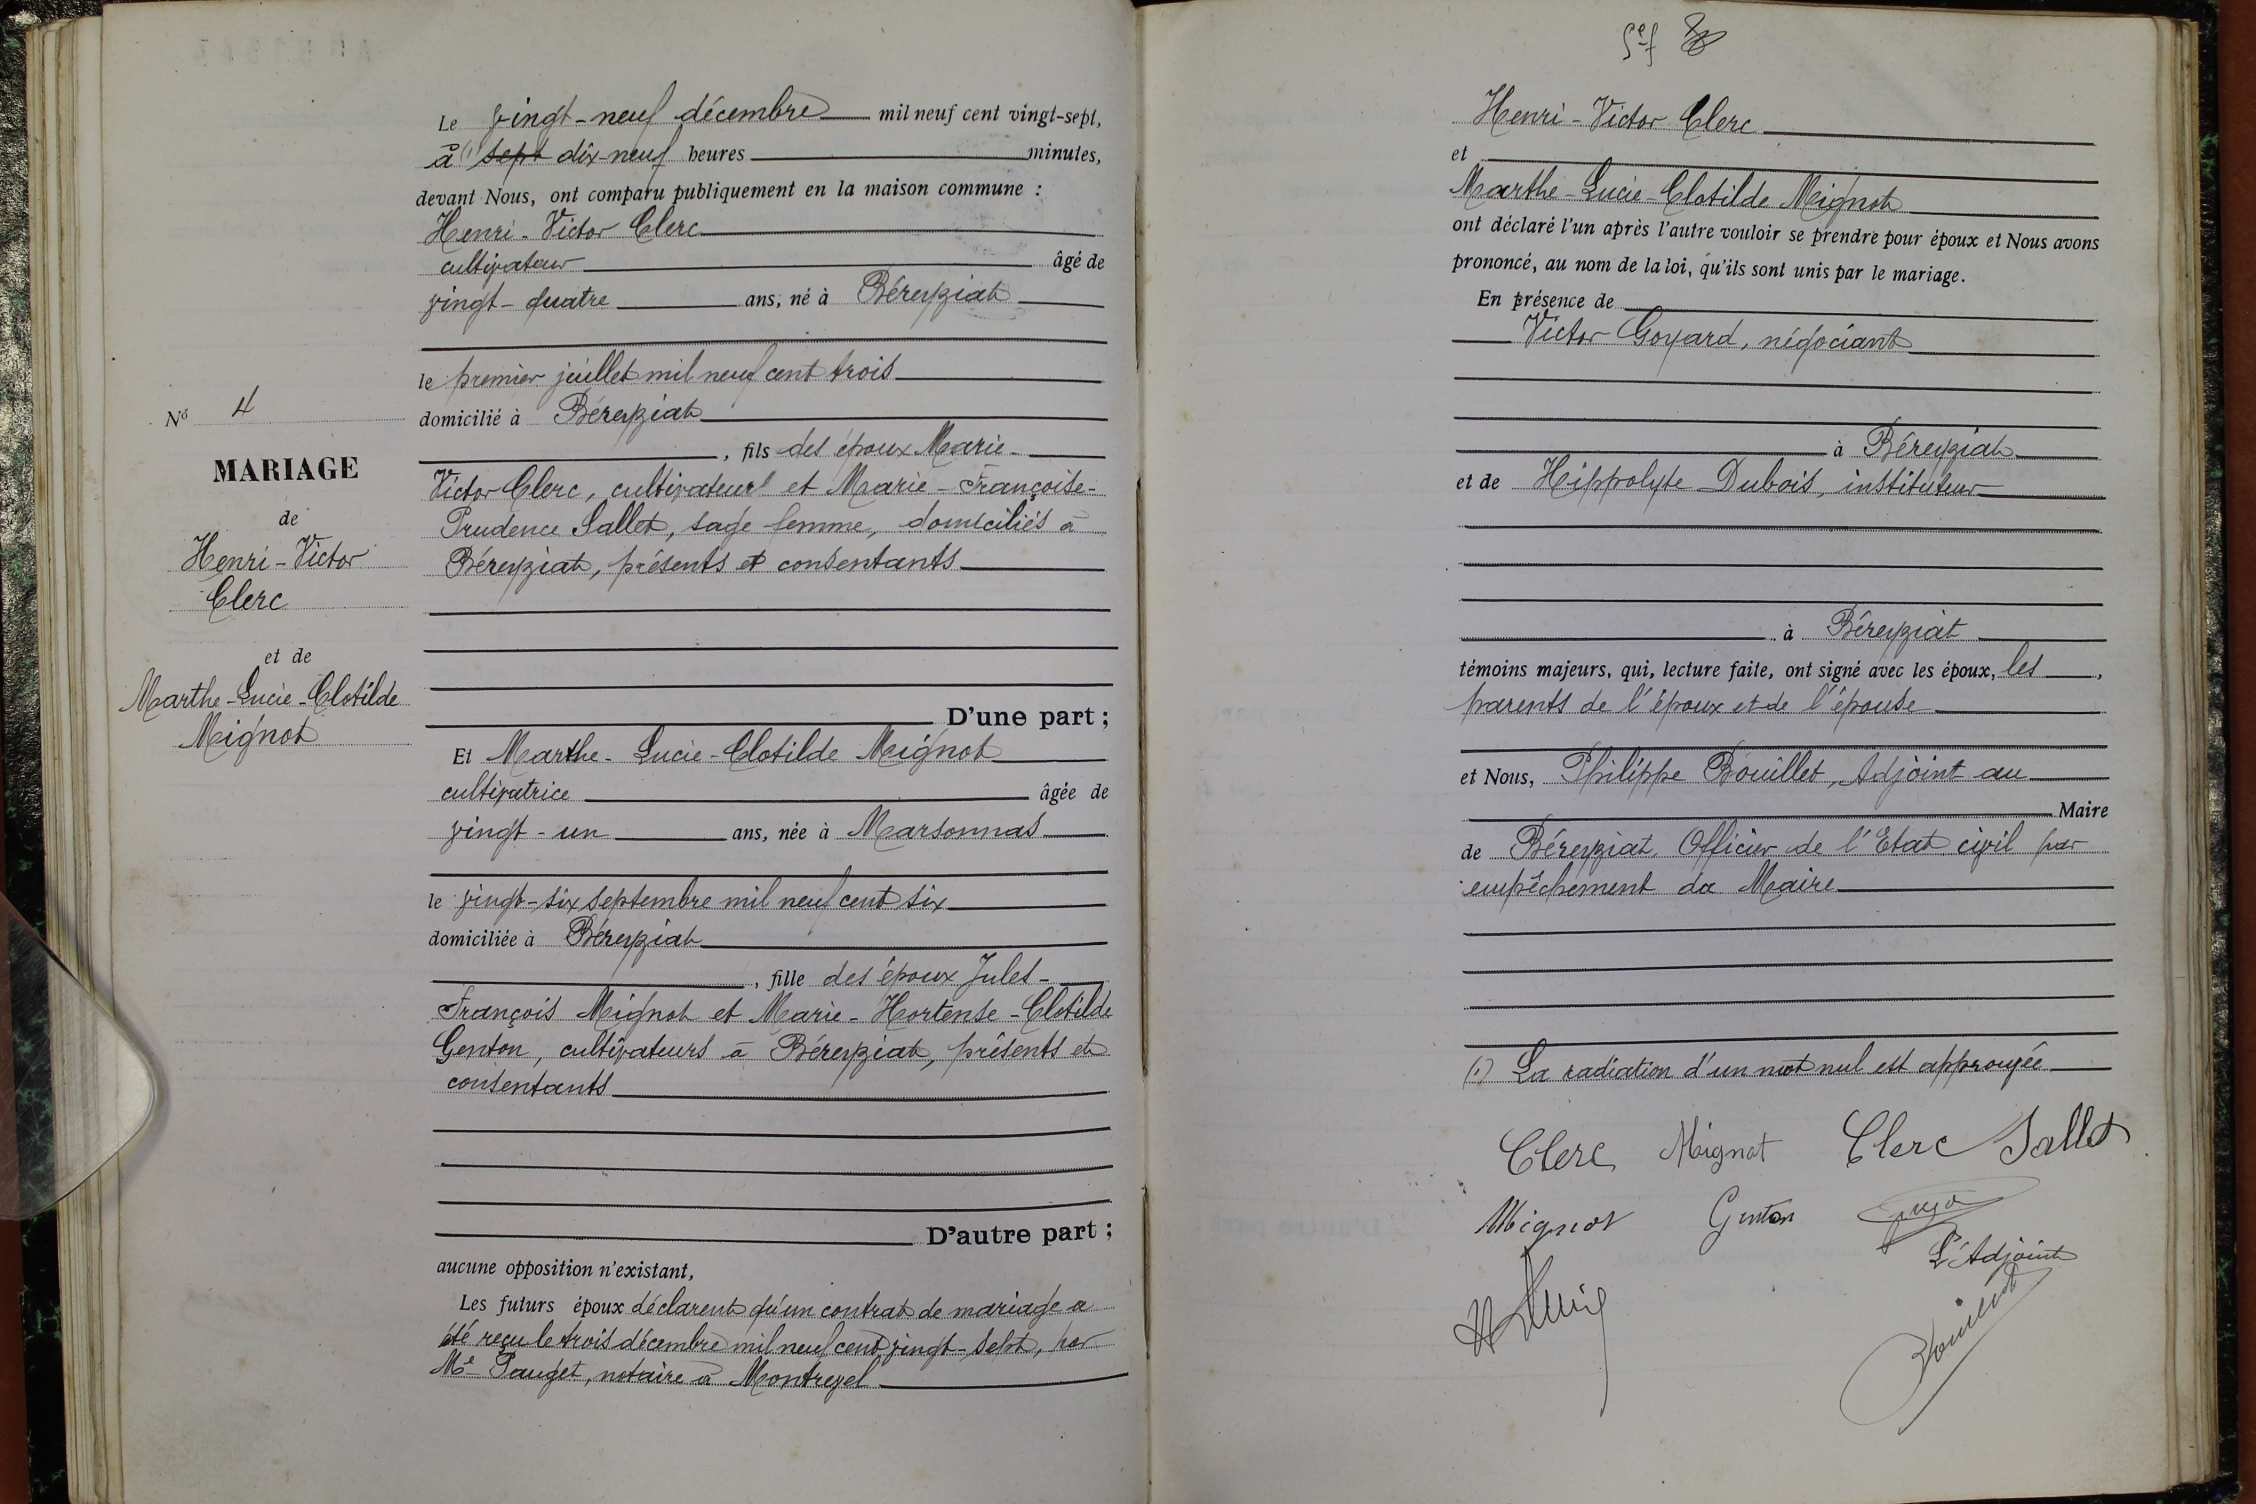 Nº 4
MARIAGE
de
Henri-Victor
Clerc
et de
Marthe-Lucie-Clotilde
Mignot
Le vingt-neuf décembre mil neuf cent vingt-sept,
à (1) sept dix neuf heures minutes,
devant Nous, ont comparu publiquement en la maison commune :
Henri-Victor Clerc
cultivateur âgé de
vingt-quatre ans, né à Béreyziat
le premier juillet mil neuf cent trois
domicilié à Béreyziat
, fils des époux Marie-
Victor Clerc, cultivateur et Marie-Françoise-
Prudence Sallet, sage femme, domiciliés à
Béreyziat, présents et consentants
D'une part ;
Et Marthe-Lucie-Clotilde Mignot
cultivatrice âgée de
vingt-un ans, née à Marsonnas
le vingt-six septembre mil neuf cent six
domiciliée à Béreyziat
, fille des époux Jules-
François Mignot et Marie-Hortense-Clotilde
Genton, cultivateurs à Béreyziat, présents et
consentants
D'autre part ;
aucune opposition n'existant,
Les futurs époux déclarent qu'un contrat de mariage a
été reçu le trois décembre mil neuf cent vingt-sept, par
Me Pauget, notaire à Montrevel
Henri-Victor Clerc
et
Marthe-Lucie-Clotilde Mignot
ont déclaré l'un après l'autre vouloir se prendre pour époux et Nous avons
prononcé, au nom de la loi, qu'ils sont unis par le mariage.
En présence de
Victor Goyard, négociant
à Béreyziat
et de Hippolyte Dubois, instituteur
à Béreyziat
témoins majeurs, qui, lecture faite, ont signé avec les époux, les ,
parents de l'époux et de l'épouse
et Nous, Philippe Bouillet, Adjoint au
Maire
de Béreyziat Officier de l'Etat civil par
empêchement du Maire
(1) La radiation d'un mot nul est approuvée
Clerc Mignot Clerc Sallet
Mignot Genton
L'Adjoint
Bouillet